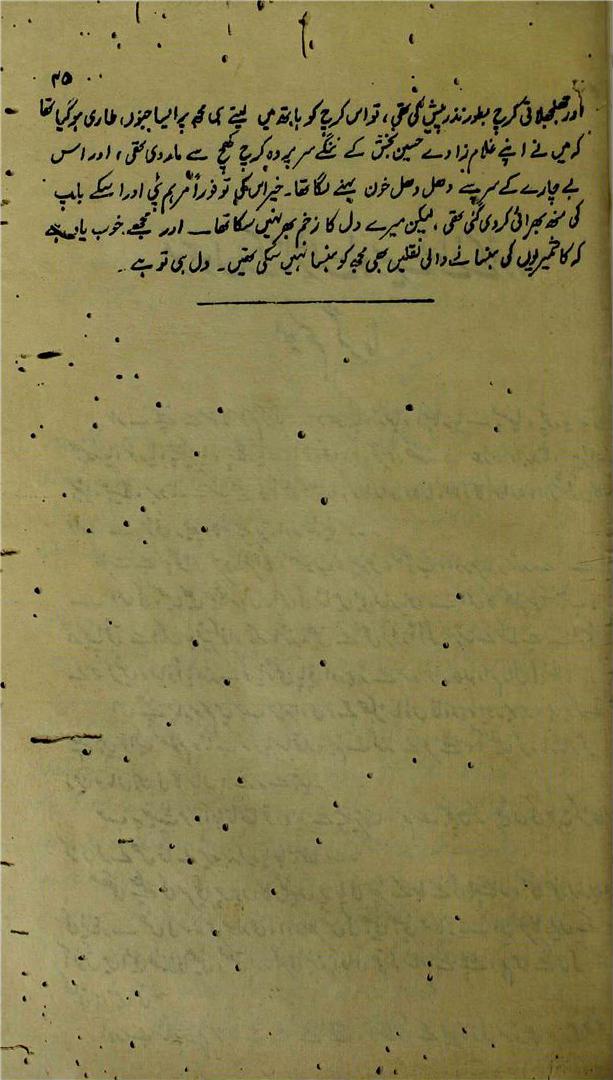 ۳۵
اور جھلجھلاتی کرچ بطور نذر پیش کی تھی، تو اس کرچ کو ہاتھ میں لیتے ہی مجھ پر ایسا جنوں طاری ہوگیا تھا
کہ میں نے اپنے غلام زادے حسین بخش کے ننگے سر پر وہ کرچ کھچ سے مار دی تھی، اور اس
بے چارے کے سر سے دھل دھل خون بہنے لگا تھا۔ خیر اس کی تو فوراً مرہم پٹی اور اسکے باپ
کی منھ بھرائی کر دی گئی تھی، لیکن میرے دل کا زخم بھر نہیں سکا تھا۔ اور مجھے خوب یاد ہے
کہ کاشمیریوں کی ہنسانے والی نقلیں بھی مجھ کو ہنسا نہیں سکی تھیں۔ دل ہی تو ہے۔